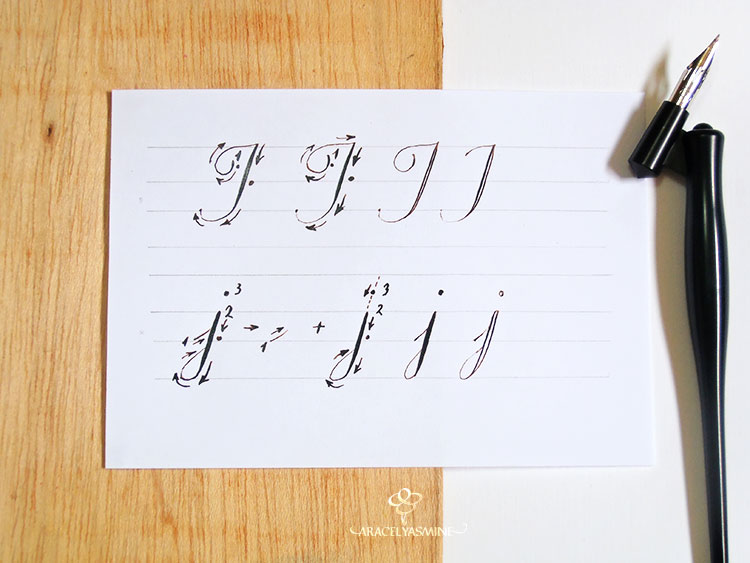 J J J J
3 3
2 2
j → 1 + j j j
1
ARACELYASMINE